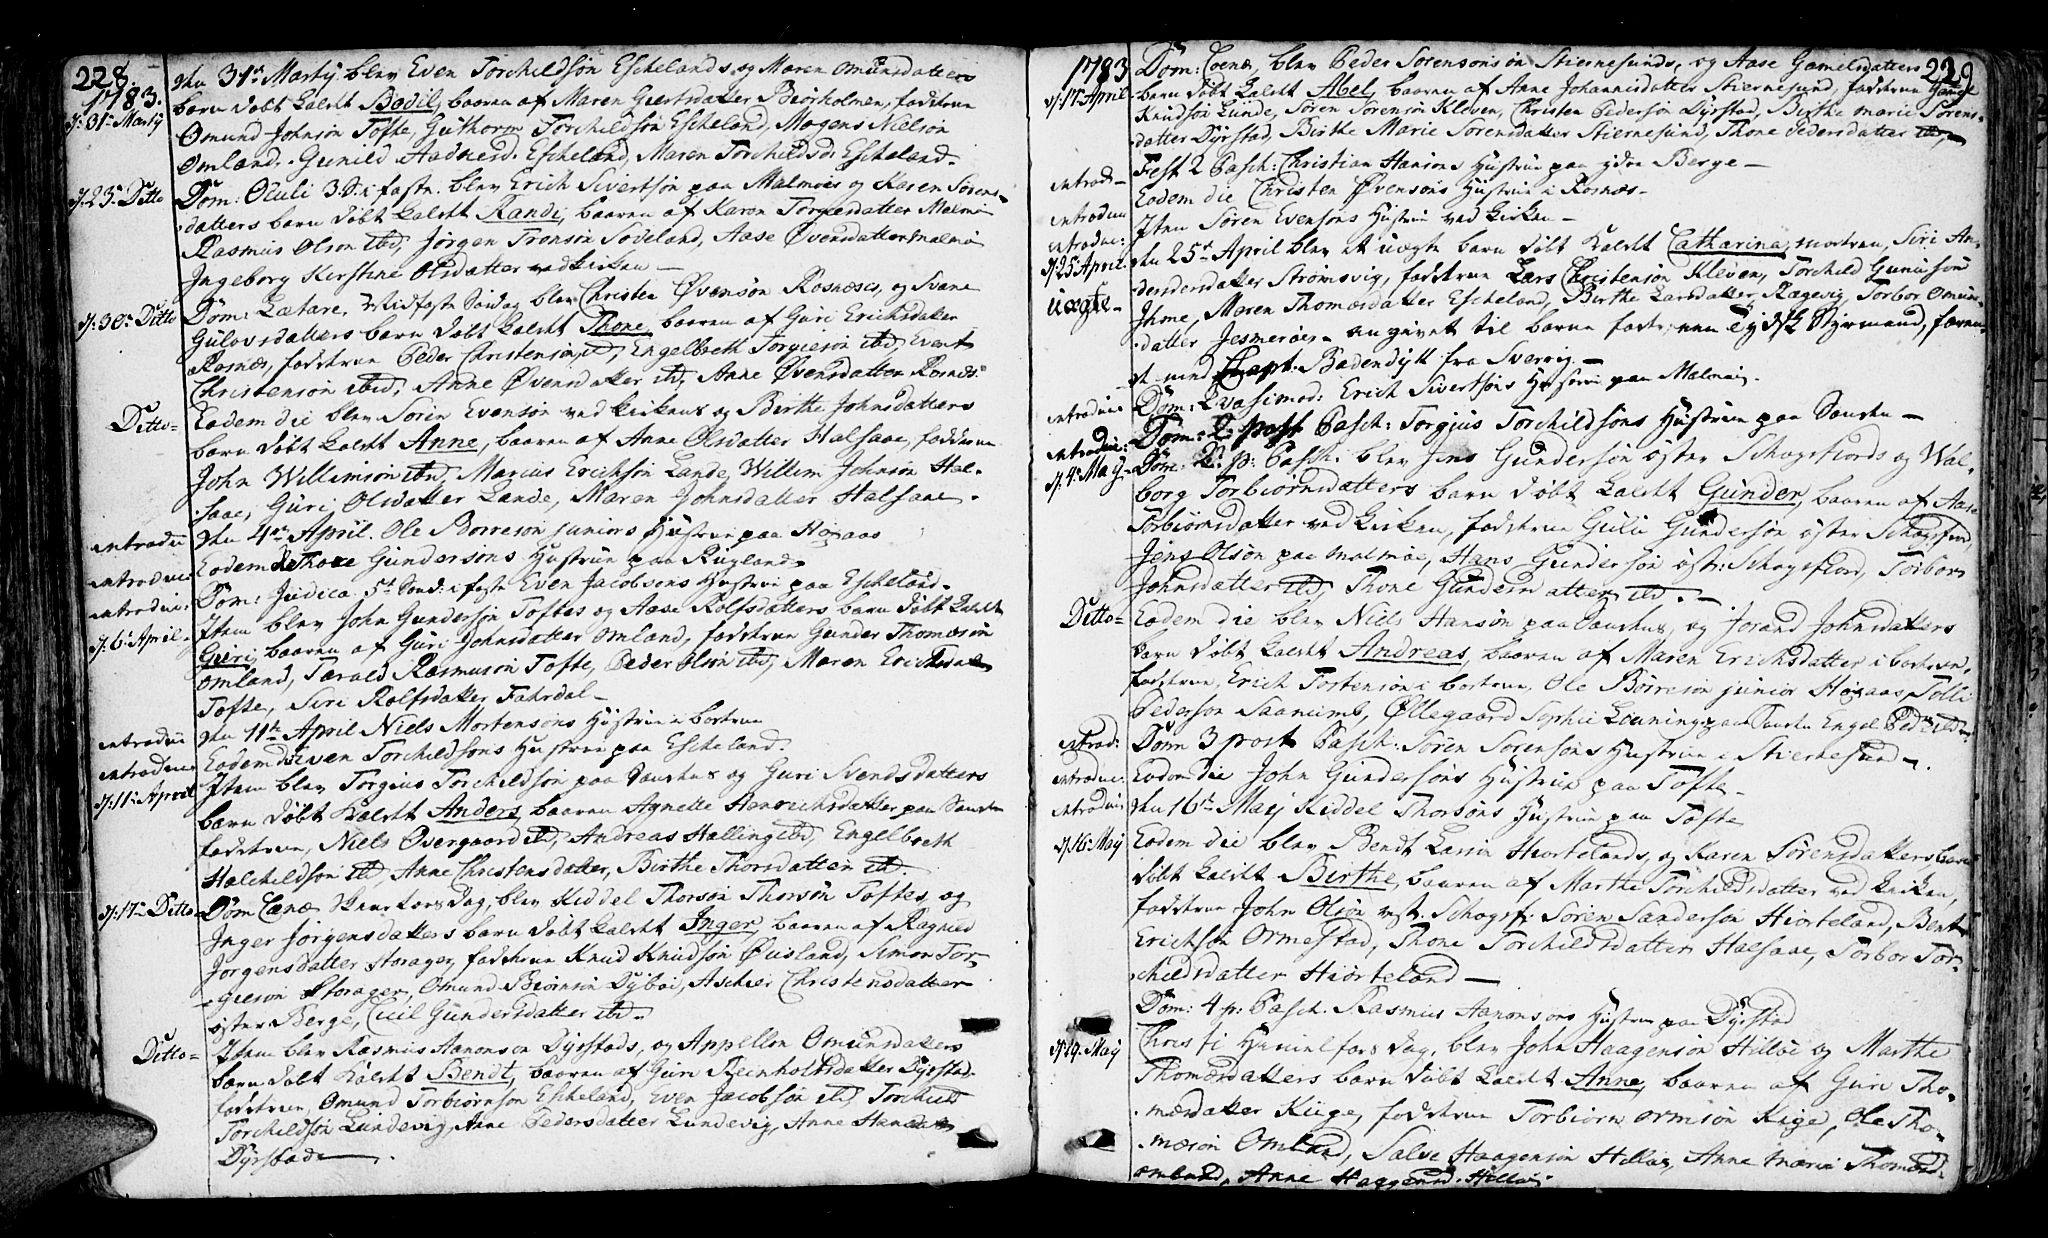 228.
1783.
d: 31te Martÿ
den 31te Martÿ blev Even Torchildsøn Eschelands, og Maren Omunsdatters
barn døbt kaldet Bodil, baaren af Maren Giertsdatter Biørholmen, fadderne
Omund Johnsøn Tofte, Guthorm Torchildsøn Escheland, Mogens Nielsøn
Omland. Gunild Aadnesd. Escheland, Maren Torchildsd. Escheland.
d. 23. Ditto
Dom: Oculi 3. S. i fastn. blev Erich Sivertsøn paa Malmøes og Karen Sørens-
datters barn døbt kaldet Randi, baaren af Karen Torgiesdatter Malmøe
Rasmus Olson ibid, Jørgen Tronsøn Soveland, Aase Øvensdatter Malmøe
Ingeborg Kirstine Olsdatter ved kirken —
d: 30te Ditto
Dom: Lætare, Midfaste Søndag blev Christen Øvensøn Rosnæses, og Svane
Gulovsdatters barn døbt kaldet Thone, baaren af Guri Erichsdatter
Rosnæs, fadderne Peder Christensøn ibd, Engelbreth Torgiesøn ibd, Event
Christensøn ibid, Anne Øvensdatter ibd, Anne Øvensdatter Rosnæs
Ditto-
Eodem die blev Søren Evensøn ved kirkens og Birthe Johnsdatters
barn døbt kaldet Anne, baaren af Anne Olsdatter Halsaae, fadderne
John Willumsøn ibd, Marcus Erichsøn Lande, Willem Johnsøn Hal-
saae, Guri Olsdatter Lande, Maren Johnsdatter Halsaae.
introdu:
den 4de April. Ole Børresøn juniors Hustrue paa Høgaas
introdu:
Eodem die Thore Gundersons Hustrue paa Rugland.
introdu:
Dom: Judica 5te Sønd: i faste Even Jacobsøns Hustrue paa Escheland.
d: 6: April.
Item blev John Gundersøn Toftes og Aase Rolfsdatters barn døbt kaldet
Guri, baaren af Guri Johnsdatter Omland, fadderne Gunder Thomæsøn
Omland, Tarald Rasmusøn Tofte, Peder Olsøn ibd, Maren Erichsdat
Tofte, Siri Rolfsdatter Fahrdal —
introdu:
den 11te April Niels Mortensøns Hustrue i bortreen
introdu:
Eodem die Even Torchildsøns Hustrue paa Escheland.
d: 11: April
Item blev Torgius Torchildsøn paa Sanskens og Guri Svendsdatters
barn døbt kaldet Anders, baaren Agnette Hanrichsdatter paa Sansken
fadderne, Niels Overgaard ibd, Andreas Halling ibd, Engelbreth
Halchildsøn ibd, Anne Christensdatter, Birthe Thorsdatter ibd.
d: 17. Ditto
Dom Coenæ Skiær tors dag, blev Kiddel Thorsøn Thorsøn Toftes, og
Inger Jørgensdatters barn døbt kaldet Inger, baaren af Ragnild
Jørgensdatter Storager, fadderne Knud Knudsøn Øvisland, Simon Tor-
giesøn Storager, Omund Biørnsøn Dybøe, Aschier Christensdatter
øster Berge, Civil Gundersdatter ibd.
Ditto-
Item blev Rasmus Aanonsøn Dyrstads, og Appellon Omunsdatters
barn døbt kaldet Bendt, baaren af Guri Reinholtsdatter Dyrstad
fadderne, Omund Torbiørnsøn Escheland, Even Jacobsøn ibd, Torchild
Torchildsøn Lundevig, Anne Pedersdatter Lundevig, Anne Hansdatter
Dyrstad —.
1783
229
d. 17. April
Dom: Coenæ, blev Peder Sørensøns øn Stiernesunds, og Aase Gamelsdatters
barn døbt kaldet Abel, baaren af Anne Johannisdatter Stiernesund, fadderne Gauge
Knudsøn Lunde, Søren Sørensøn Kleven, Christen Pedersøn Dyrstad, Birthe marie Sørens-
datter Dyrstad, Birthe Marie Sørensdatter Stiernesund, Thone Pedersdatter ibd,—
introd-
Fest 2 Pasch: Christian Hansøns Hustrue paa ydre Berge —
Eodem die Christen Øvensøns Hustrue i Rosnæs —
introdu:
Item Søren Evensøns Hustrue ved kirken —
introdu:
d: 25 April.
uægte-
den 25de April blev et uægte barn døbt kaldet Catharina, moderen, Siri An-
dersdatter Strømsvig, fadderne Lars Christensøn Kleven, Torchild Gunnersøn
Thone, Maren Thomæsdatter Escheland, Birthe Larsdatter Ragevig, Torbor Omun-
datter Jesmerøes — angivet til barne fader, een Tydsk Styrmand, faren-
de med Capt: Badendyk fra Sverrig —
introdu:
Dom: Qvasimod: Erich Sivertsøns Hustrue paa Malmøe.
introdu:
Dom: 2 post Pasch: Torgius Torchildsøns Hustrue paa Sansken —
d. 4. May
Dom: 2. p: Pasch: blev Jens Gundersøn øster Schogsfiords og Wal-
borg Torbiørnsdatters barn døbt kaldet Gunder, baaren af Aase
Torbiørnsdatter ved kirken, fadderne Guli Gundersøn øster Schogsfiord,
Jens Olsøn paa malmøe, Hans Gundersøn østr: Schogsfiord, Torbor
Johnsdatter ibd, Thone Gundersdatter ibd. —
Ditto-
Eodem die blev Niels Hansøn paa Sanskens, og Jorand Johnsdatters
barn døbt kaldet Andreas, baaren af Maren Erichsdatter i bortreen,
fadderne, Erich Tostensøn i bortreen, Ole Børresøn junior Høgaas, Tolli
Pedersøn Saanumb, Øllegaard Sophie Leuning paa Sansken, Engel
introd:
Dom 3 post Pasch: Søren Sørensøns Hustrue i Stiernesund.
introdu:
Eodem die John Gundersøns Hustrue paa Tofte —
introdu:
den 16de May Kiddel Thorsøns Hustrue paa Tofte
d. 16. May
Eodem die blev Bendt Larsøn Hiortelands, og Karen Sørensdatters barn
døbt kaldet Birthe, baaren af Marthe Torchildsdatter ved kirken,
fadderne John Olsøn vest. Schogsf: Søren Sandersøn Hiorteland, Bent
Erichsøn Ormestad, Thone Torchildsdatter Halsaae, Torbor Tor-
childsdatter Hiorteland —
Dom: 4 p: Pasch. Rasmus Aanonsøns Hustrue paa Dyrstad
d. 29. May
Christi Himmelfarts dag, blev John Haagensøn Hilløe og Marthe
Thomæsdatters barn døbt kaldet Anne, baaren af Guri Tho-
mæsdatter Kige, fadderne Torbiørn ormsøn Kige, Ole Tho-
mæsøn Omland, Salve Haagensøn Hilløe, Anne Marie Thomæsd
omland, Anne Haagensd. Hilløe.